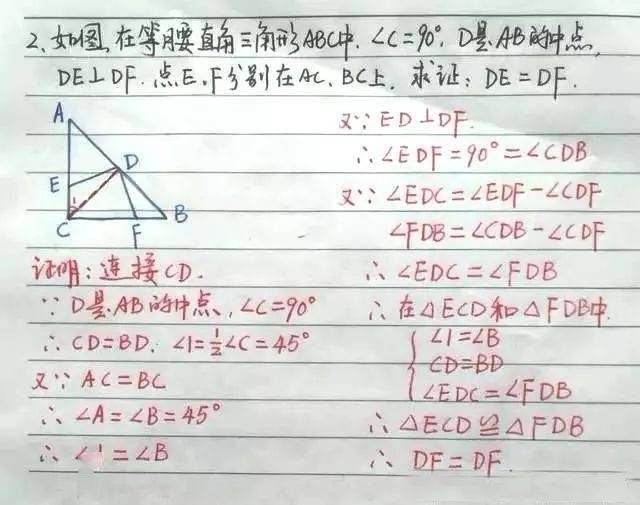 2、如图,在等腰直角三角形ABC中,∠C=90°,D是AB的中点,
DE⊥DF.点E、F分别在AC、BC上,求证:DE=DF.
A
D
E
1
C
F
B
证明:连接CD.
∵D是AB的中点,∠C=90°
∴CD=BD.∠1=½∠C=45°
又∵AC=BC
∴∠A=∠B=45°
∴∠1=∠B
又∵ED⊥DF.
∴∠EDF=90°=∠CDB
又∵∠EDC=∠EDF-∠CDF
∠FDB=∠CDB-∠CDF
∴∠EDC=∠FDB
∴在△ECD和△FDB中.
∠1=∠B
CD=BD
∠EDC=∠FDB
∴△ECD≌△FDB
∴DF=DF.